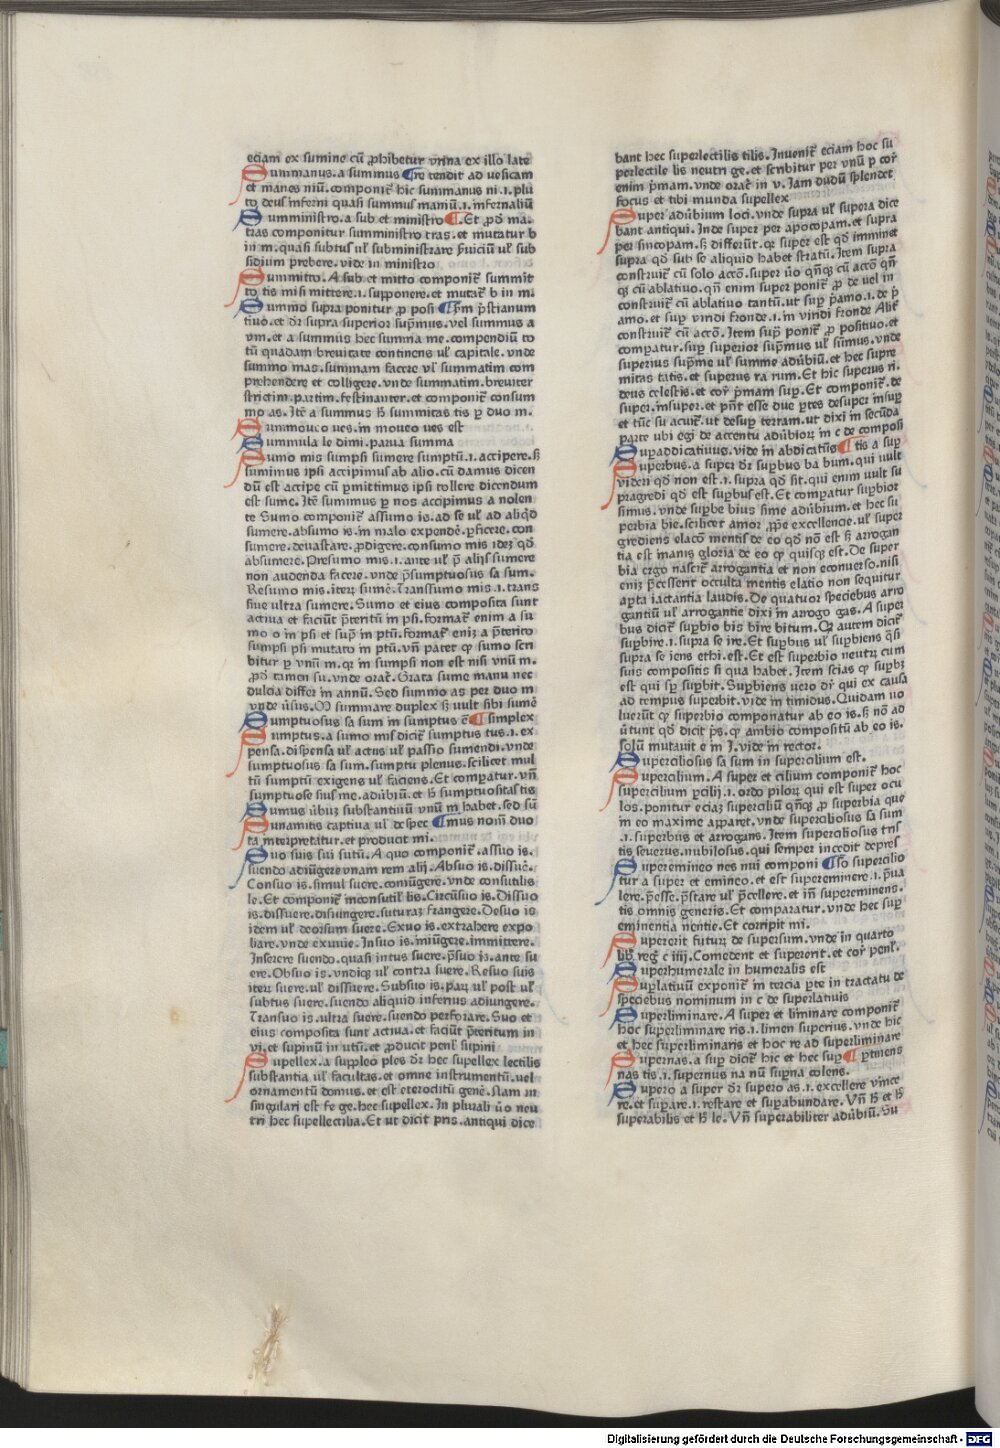 eciam ex sumine cũ ꝓhibetur vrina ex illo late
Summanus.a summus ¶re tendit ad vesicam
et manes niũ.componiť hic summanus ni.i.plu
to deus inferni quasi summus maniũ.i.infernaliũ
Sumministro.a sub et ministro ¶.Et ꝓđ ma.
tras componitur sumministro tras.et mutatur b
in m.quasi subtus uł subministrare ẜuiciũ uł sub
sidium p̃rebere.vide in ministro
Summitto.A sub et mitto componiť summit
to tis misi mittere.i.supponere.et mutať b in m.
Summo supra ponitur ꝓ posi ¶p̃m p̃stianum
tiuo.et dr̃ supra superior sup̃mus.vel summus a
vm.et a summus hec summa me.compendiũ to
tũ quadam breuitate continens uł capitale.vnde
summo mas.summam facere vł summatim com
prehendere et colligere.vnde summatim.breuiter
strictim.partim.festinanter.et componiť consum
mo as.Itẽ a summus ħ summitas tis ꝑ duo m.
Summoueo ues.in moueo ues est
Summula le dimi.parua summa
Sumo mis sumpsi sumere sumptũ.i.accipere.ẞ
sumimus ipsi accipimus ab alio.cũ damus dicen
dũ est accipe cũ ꝑmittimus ipsi tollere dicendum
est sume.Itẽ summus ꝑ nos accipimus a nolen
te Sumo componiť assumo is.ad se uł ad aliqđ
sumere.absumo is.in malo expendẽ.ꝑficere.con
sumere.deuastare.ꝓdigere.consumo mis idez qđ
absumere.Presumo mis.i.ante uł p̃ alijs sumere
non audenda facere.vnde p̃sumptuosus sa sum.
Resumo mis.iterũ sumẽ.Transsumo mis.i.trans
siue ultra sumere.Sumo et eius composita sunt
actiua et faciũt p̃teritũ in psi.formať enim a su
mo o in psi et sup̃ in ptũ.formať eniz a p̃terito
sumpsi psi mutato in ptũ.vñ patet ꝙ sumo scri
bitur ꝑ vnũ m.qꝛ in sumpsi non est nisi vnũ m.
ꝓđ tamen su.vnde orať.Grata sume manu nec
dulcia differ in annũ.Sed summo as per duo m
vnde ũsus.M summare duplex ẞ uult sibi sumẽ
Sumptuosus sa sum in sumptus ẽ ¶ simplex
Sumptus.a sumo mis dicič sumptus tus.i.ex
pensa.dispensa uł actus uł passio sumendi.vnde
sumptuosus sa sum.sumptu plenus.scilicet mul
tũ sumptũ exigens uł faciens.Et comꝑatur.vñ
sumptuose sius me.adũbiũ.et ħ sumptuositas tis
Sumus ũbuz substantiuũ vnũ m habet.sed sũ
Sunamitis captiua uł despec ¶mus nom̃ duo
ta interpretatur.et producit mi.
Suo suis sui sutũ.A quo componiť.assuo is.
suendo adiũgere vnam rem alij.Absuo is.dissuẽ.
Consuo is.simul suere.coniũgere.vnde consutilis
le.Et componiť inconsutił lis.Circũsuo is.Dissuo
is.dissuere.disiungere.suturaz frangere.Desuo is
idem uł deorsum suere.Exuo is.extrahere expo
liare.vnde exuuie.Insuo is.iniũgere.immittere.
Inserere suendo.quasi intus suere.p̃suo is.ante su
ere.Obsuo is.vndiqꝫ uł contra suere.Resuo suis
iterz suere.uł dissuere.Subsuo is.parz uł post uł
subtus suere.suendo aliquid inferius adiungere.
Transuo is.ultra suere.suendo perforare.Suo et
eius composita sunt actiua.et faciũt p̃teritum in
vi.et supinũ in utũ.et ꝓducit penł supini
Supellex.a suppleo ples dr̃ hec supellex lectilis
substantia uł facultas.et omne instrumentũ.vel
ornamentũ domus.et est etherocliti genẽ.Nam in
singulari est fe ge.hec supellex.In plurali ũo neu
tri hec supellectilia.Et ut dicit pris.antiqui dice
bant hec superlectilis tilis.Inueniť eciam hoc su
perlectile lis neutri ge.et scribitur per vnũ p corꝛ̃
enim p̃mam.vnde orať in v.Jam dudũ splendet
focus et tibi munda supellex
Super adũbium loci.vnde supra uł supera dice
bant antiqui.Inde super per apocopam.et supra
per sincopam.ẞ differũt.qꝛ super est qđ imminet
supra qđ sub se aliquid habet stratũ.Item supra
construiť cũ solo accõ.super ũo qñqꝫ cũ accõ qñ
qꝫ cũ ablatiuo.qñ enim super poniť ꝓ de uel in
construiť cũ ablatiuo tantũ.ut suꝑ p̃amo.i.de p̃
amo.et suꝑ viridi fronde.i.in viridi fronde Aliť
construiť cũ accõ.Item suꝑ poniť ꝓ positiuo.et
comꝑatur.suꝑ superior sup̃mus uł sũmus.vnde
superius sup̃me uł summe adũbiũ.et hec supre
mitas tatis.et superus ra rum.Et hic superus ri.
deus celestis.et corꝛ̃ p̃mam suꝑ.Et componiť.de
super.insuper.et p̃nt esse due ꝑtes desuper insuꝑ
et tũc su acuiť.ut desuꝑ terram.ut dixi in secũda
parte ubi egi de accentu adũbiorꝝ in c de composi
Suꝑaddicatiuus.vide in abdicatiũs ¶ tis a suꝑ
Superbus.a super dr̃ suꝑbus ba bum.qui uult
videri qđ non est.i.supra qđ sit.qui enim uult su
pragredi qđ est suꝑbus est.Et comꝑatur suꝑbior
simus.vnde suꝑbe bius sime adũbium.et hec su
perbia bie.scilicet amor ꝓp̃e excellencie.uł super
grediens elacõ mentis de eo qđ nõ est ẞ arrogan
tia est inanis gloria de eo ꝙ quisqꝫ est.De super
bia ergo nasciť arrogantia et non econuerso.nisi
eniz p̃cesserit occulta mentis elatio non sequitur
aꝑta iactantia laudis.De quatuor speciebus arro
gantiũ uł arrogantie dixi in arrogo gas.A super
bus diciť suꝑbio bis bire bitum.Qꝛ autem diciť
suꝑbire.i.supra se ire.Et suꝑbus uł suꝑbiens q̃si
supra se iens ethi.est.Et est superbio neutrꝝ cum
suis compositis si qua habet.Item scias ꝙ suꝑbꝫ
est qui sꝑ suꝑbit.Suꝑbiens uero dr̃ qui ex causa
ad tempus superbit.vide in timidus.Quidam uo
luerũt ꝙ superbio componatur ab eo is.ẞ nõ ad
ũtunt qđ dicit p̃s.ꝙ ambio compositũ ab eo is.
solũ mutauit e in J.vide in rector.
Superciliosus sa sum in supercilium est.
Supercilium.A super et cilium componiť hoc
supercilium ꝑcilij.i.ordo pilorꝝ qui est super ocu
los.ponitur eciaz superciliũ qñqꝫ ꝓ superbia que
in eo maxime apparet.vnde superciliosus sa sum
.i.superbus et arrogans.Item superciliosus tris
tis seuerus.nubilosus.qui semper incedit depres
Superemineo nes nui componi ¶so supercilio
tur a super et emineo.et est supereminere.i.p̃ua
lere.p̃esse.p̃stare uł p̃cellere.et iñ supereminens.
tis omnis generis.Et comparatur.vnde hec suꝑ
eminentia nentie.Et corripit mi.
Supererit futurꝫ de supersum.vnde in quarto
lib̃.reg̃ c iiij.Comedent et supererit.et corꝛ̃ penł.
Superhumerale in humeralis est
Suꝑlatiuũ exponiť in tercia ꝑte in tractatu de
speciebus nominum in c de suꝑlatiuis
Superliminare.A super et liminare componiť
hoc superliminare ris.i.limen superius.vnde hic
et hec superliminaris et hoc re ad superliminare
Supernas.a suꝑ diciť hic et hec suꝑ ¶ ꝑtinens
nas tis.i.supernus na nũ suꝑna colens.
Supero a super dr̃ supero as.i.excellere vince
re.et suꝑare.i.restare et suꝑabundare.Vñ ħ et ħ
superabilis et ħ le.Vñ superabiliter adũbiũ.Su
Digitalisierung gefördert durch die Deutsche Forschungsgemeinschaft - DFG